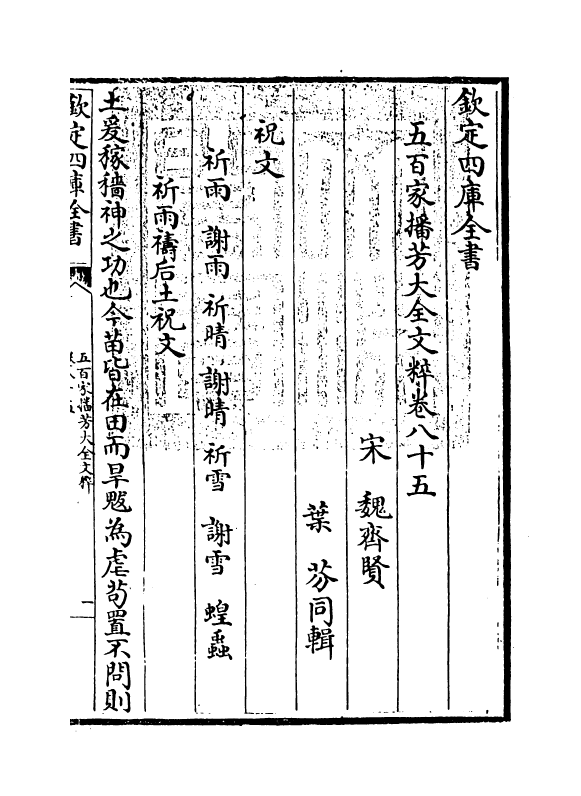 欽定四庫全書
五百家播芳大全文粹卷八十五
宋 魏齊賢
葉 芬同輯
祝文
祈雨 謝雨 祈晴 謝晴 祈雪 謝雪 蝗螽
祈雨禱后土祝文
土爰稼穡神之功也今苗皆在田而旱魃為虐茍置不問則
欽定四庫全書
五百家播芳大全文粹
一